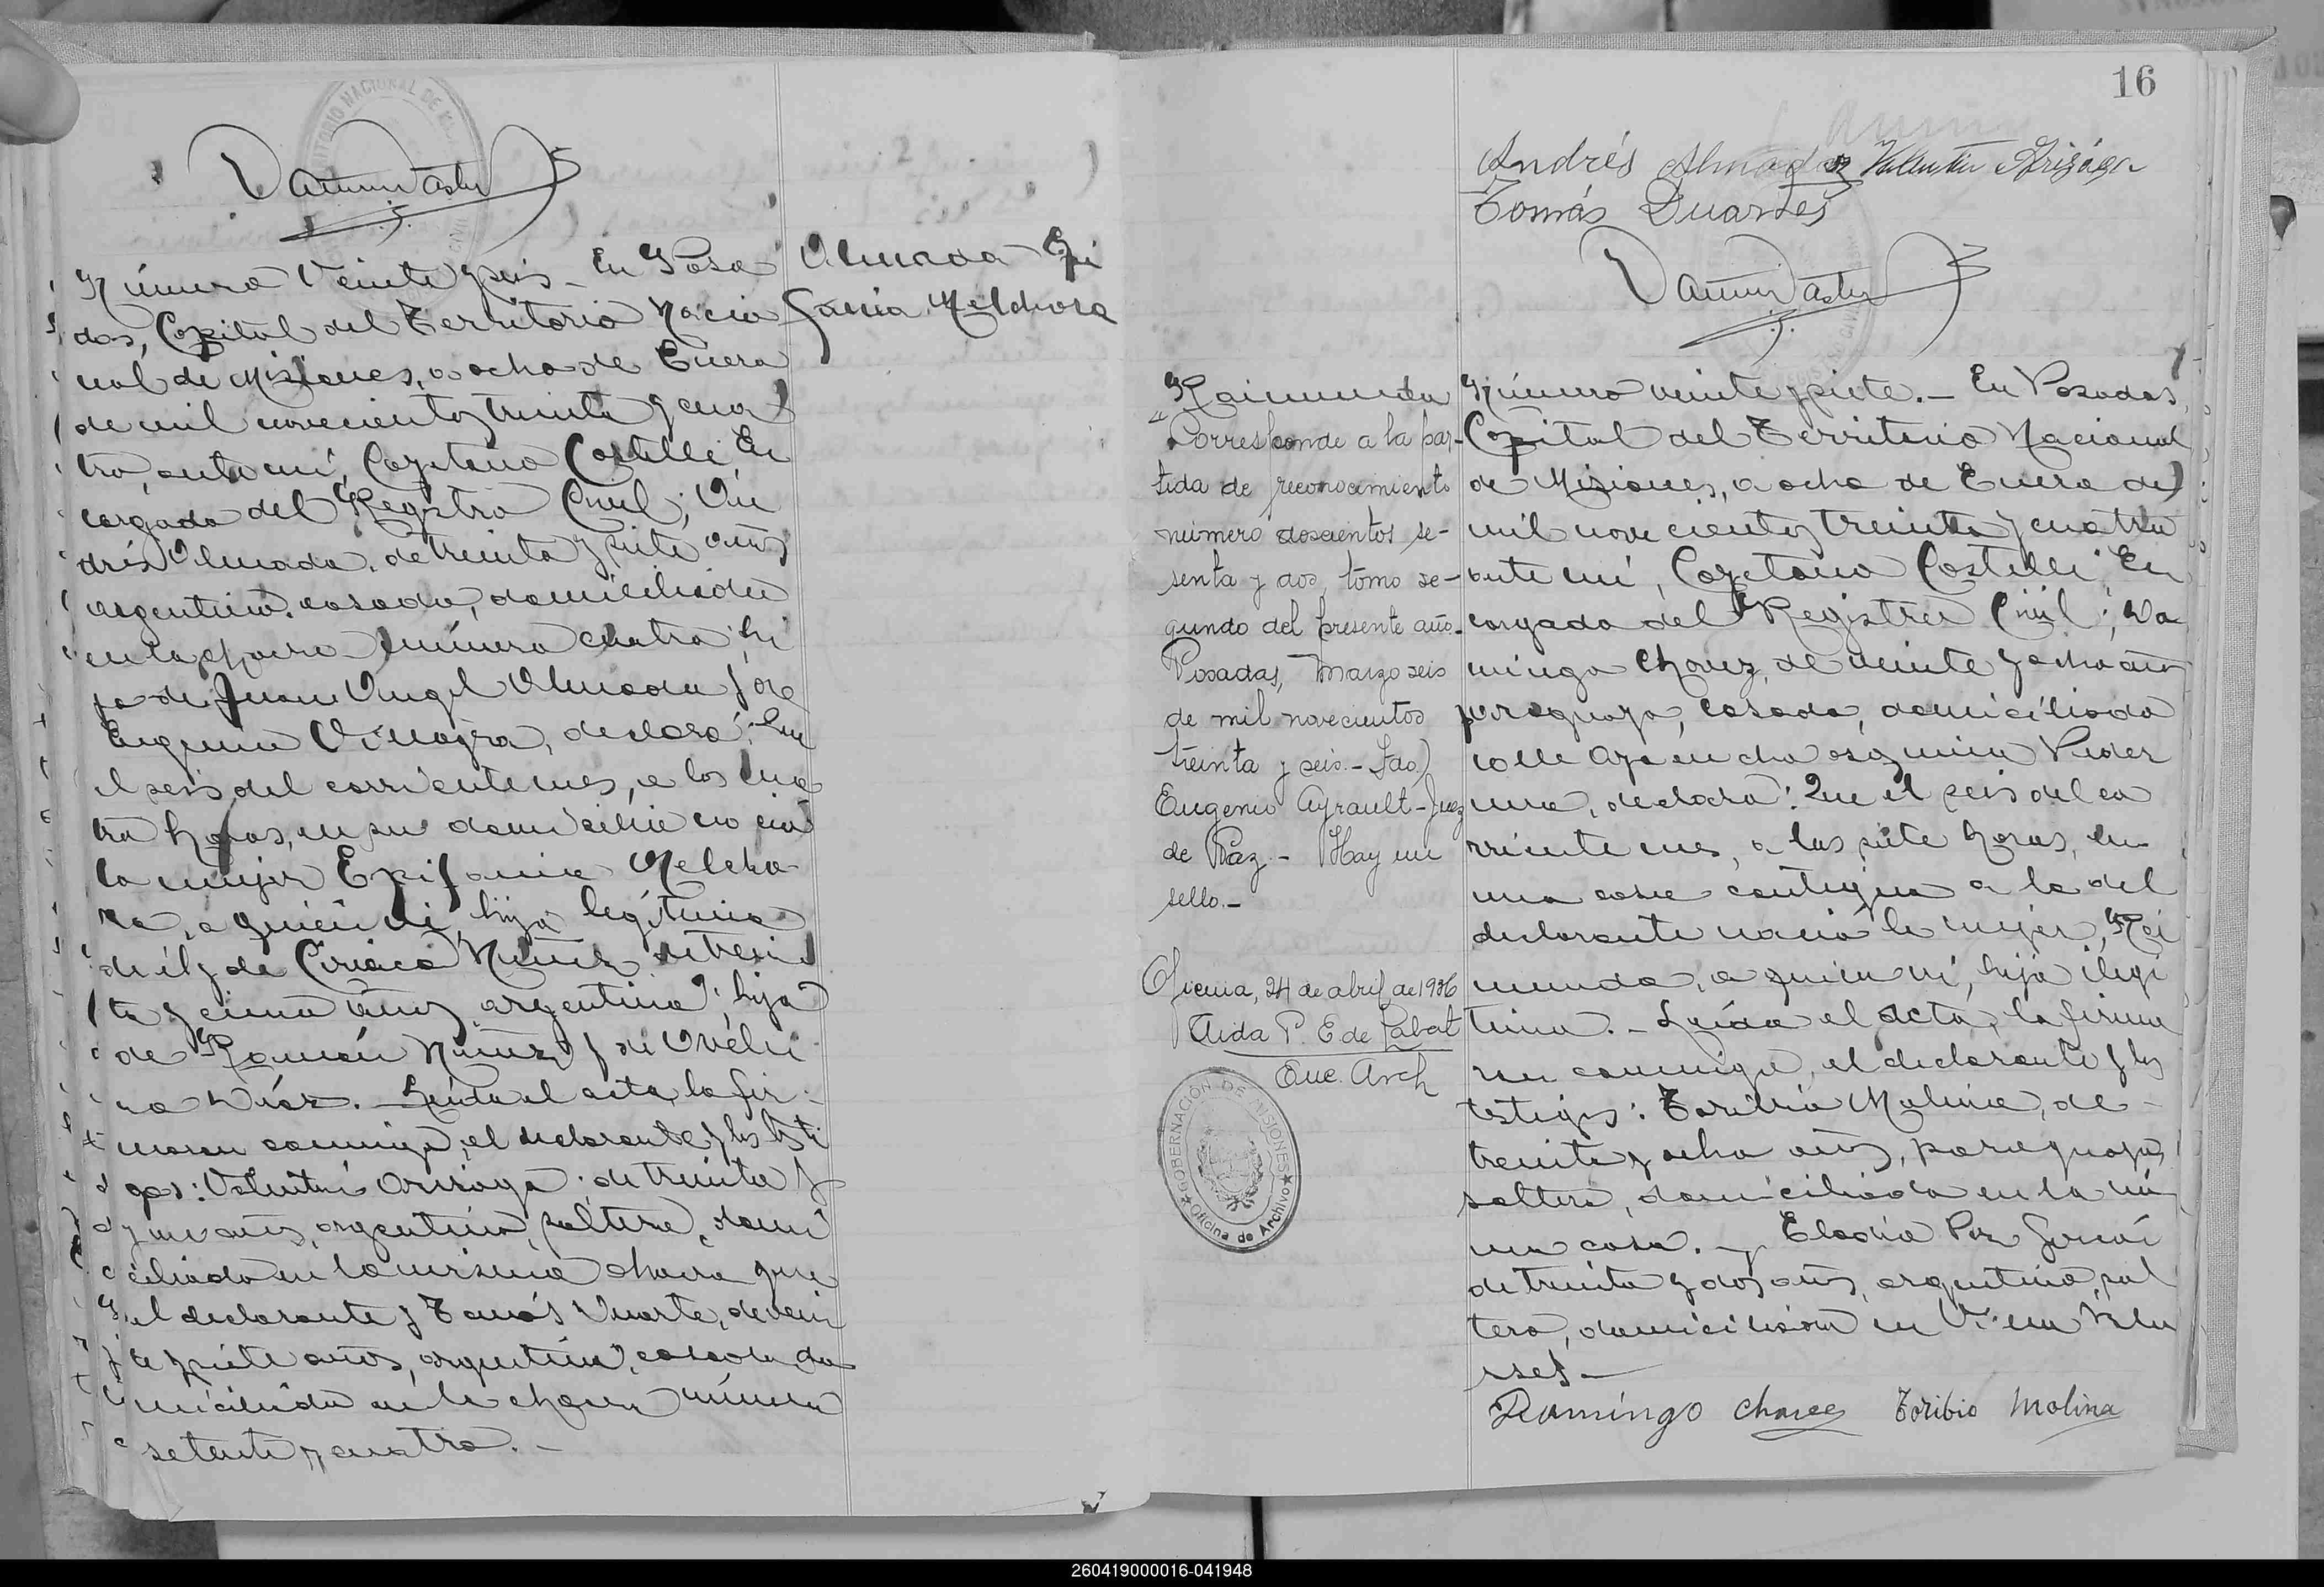 Número Veinte y seis – En Posa
das, Capital del Territorio Nacio
nal de Misiones, a ocho de Enero
de mil novecientos treinta y cua
tro, ante mí, Cayetano Castelli, En
cargado del Registro Civil; An
drés Almada, de treinta y siete años
argentino, casado, domiciliado
en la chacra número cuatro, hi
jo de Juan Angel Almada y de
Eugenia Villagra, declaró: Que
el seis del corriente mes, a las cua
tro horas, en su domicilio nació
la mujer Epifania Melcho
ra, a quien vi, hija legítima
de él y de Ciriaca Nuñez, de trein
ta y cinco años, argentina, hija
de Ramón Nuñez y de Avelí
na Diaz. – Leída el acta, la fir-
maron conmigo, el declarante y los testi
gos: Valentín Arizaga, de treinta
y un años, argentino, soltero, domi
ciliado en la misma chacra que
el declarante y Tomás Duarte, de vein
te y siete años, argentino, casado, do
miciliado en la chacra número
setenta y cuatro. –
Almada Epi
fania Melchora
16
Andrés Almada Valentin Arizaga
Tomás Duartes
Raimunda
"Corresponde a la par-
tida de reconocimiento
número doscientos se-
senta y dos, tomo se-
gundo del presente año.
Posadas, Marzo seis
de mil novecientos
treinta y seis. – Fdo)
Eugenio Ayrault – Juez
de Paz. – Hay un
sello. –
Oficina, 24 de abril de 1936
Aida P. E de Labat
Enc. Arch
GOBERNACIÓN DE MISIONES
Oficina de Archivo
Número veinte y siete. – En Posadas,
Capital del Territorio Nacional
de Misiones, a ocho de Enero de
mil novecientos treinta y cuatro
ante mí, Cayetano Castelli, En
cargado del Registro Civil; Do
mingo Chavez, de veinte y ocho años
paraguayo, casado, domiciliado
calle Ayacucho esquina Peder
nera, declaró: Que el seis del co
rriente mes, a las siete horas, en
una casa contigua a la del
declarante nació la mujer, Rai
munda, a quien vi, hija ilegí
tima. – Leída el acta, la firma
ron conmigo, el declarante y los
testigos: Toribio Molina, de
treinta y ocho años, paraguayo,
soltero, domiciliado en la mis
ma casa. – y Eladio
de treinta y dos años, argentino, sol
tero, domiciliado en Villa Blo
sset –
Domíngo chavez Toribio Molina
260419000016-041948